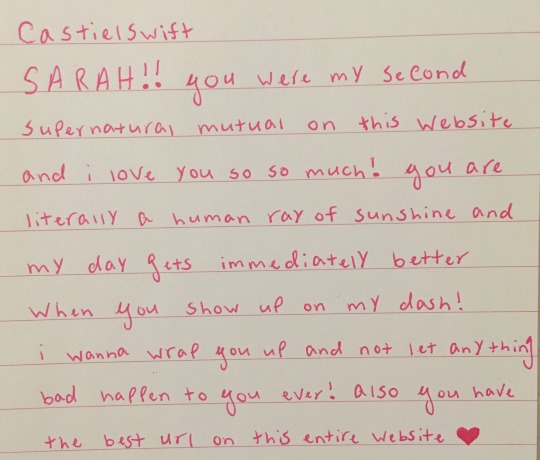 Castielswift
SARAH!! you were my second
supernatural mutual on this website
and i love you so so much! you are
literally a human ray of sunshine and
my day gets immediately better
when you show up on my dash!
i wanna wrap you up and not let anything
bad happen to you ever! also you have
the best url on this entire website ♥